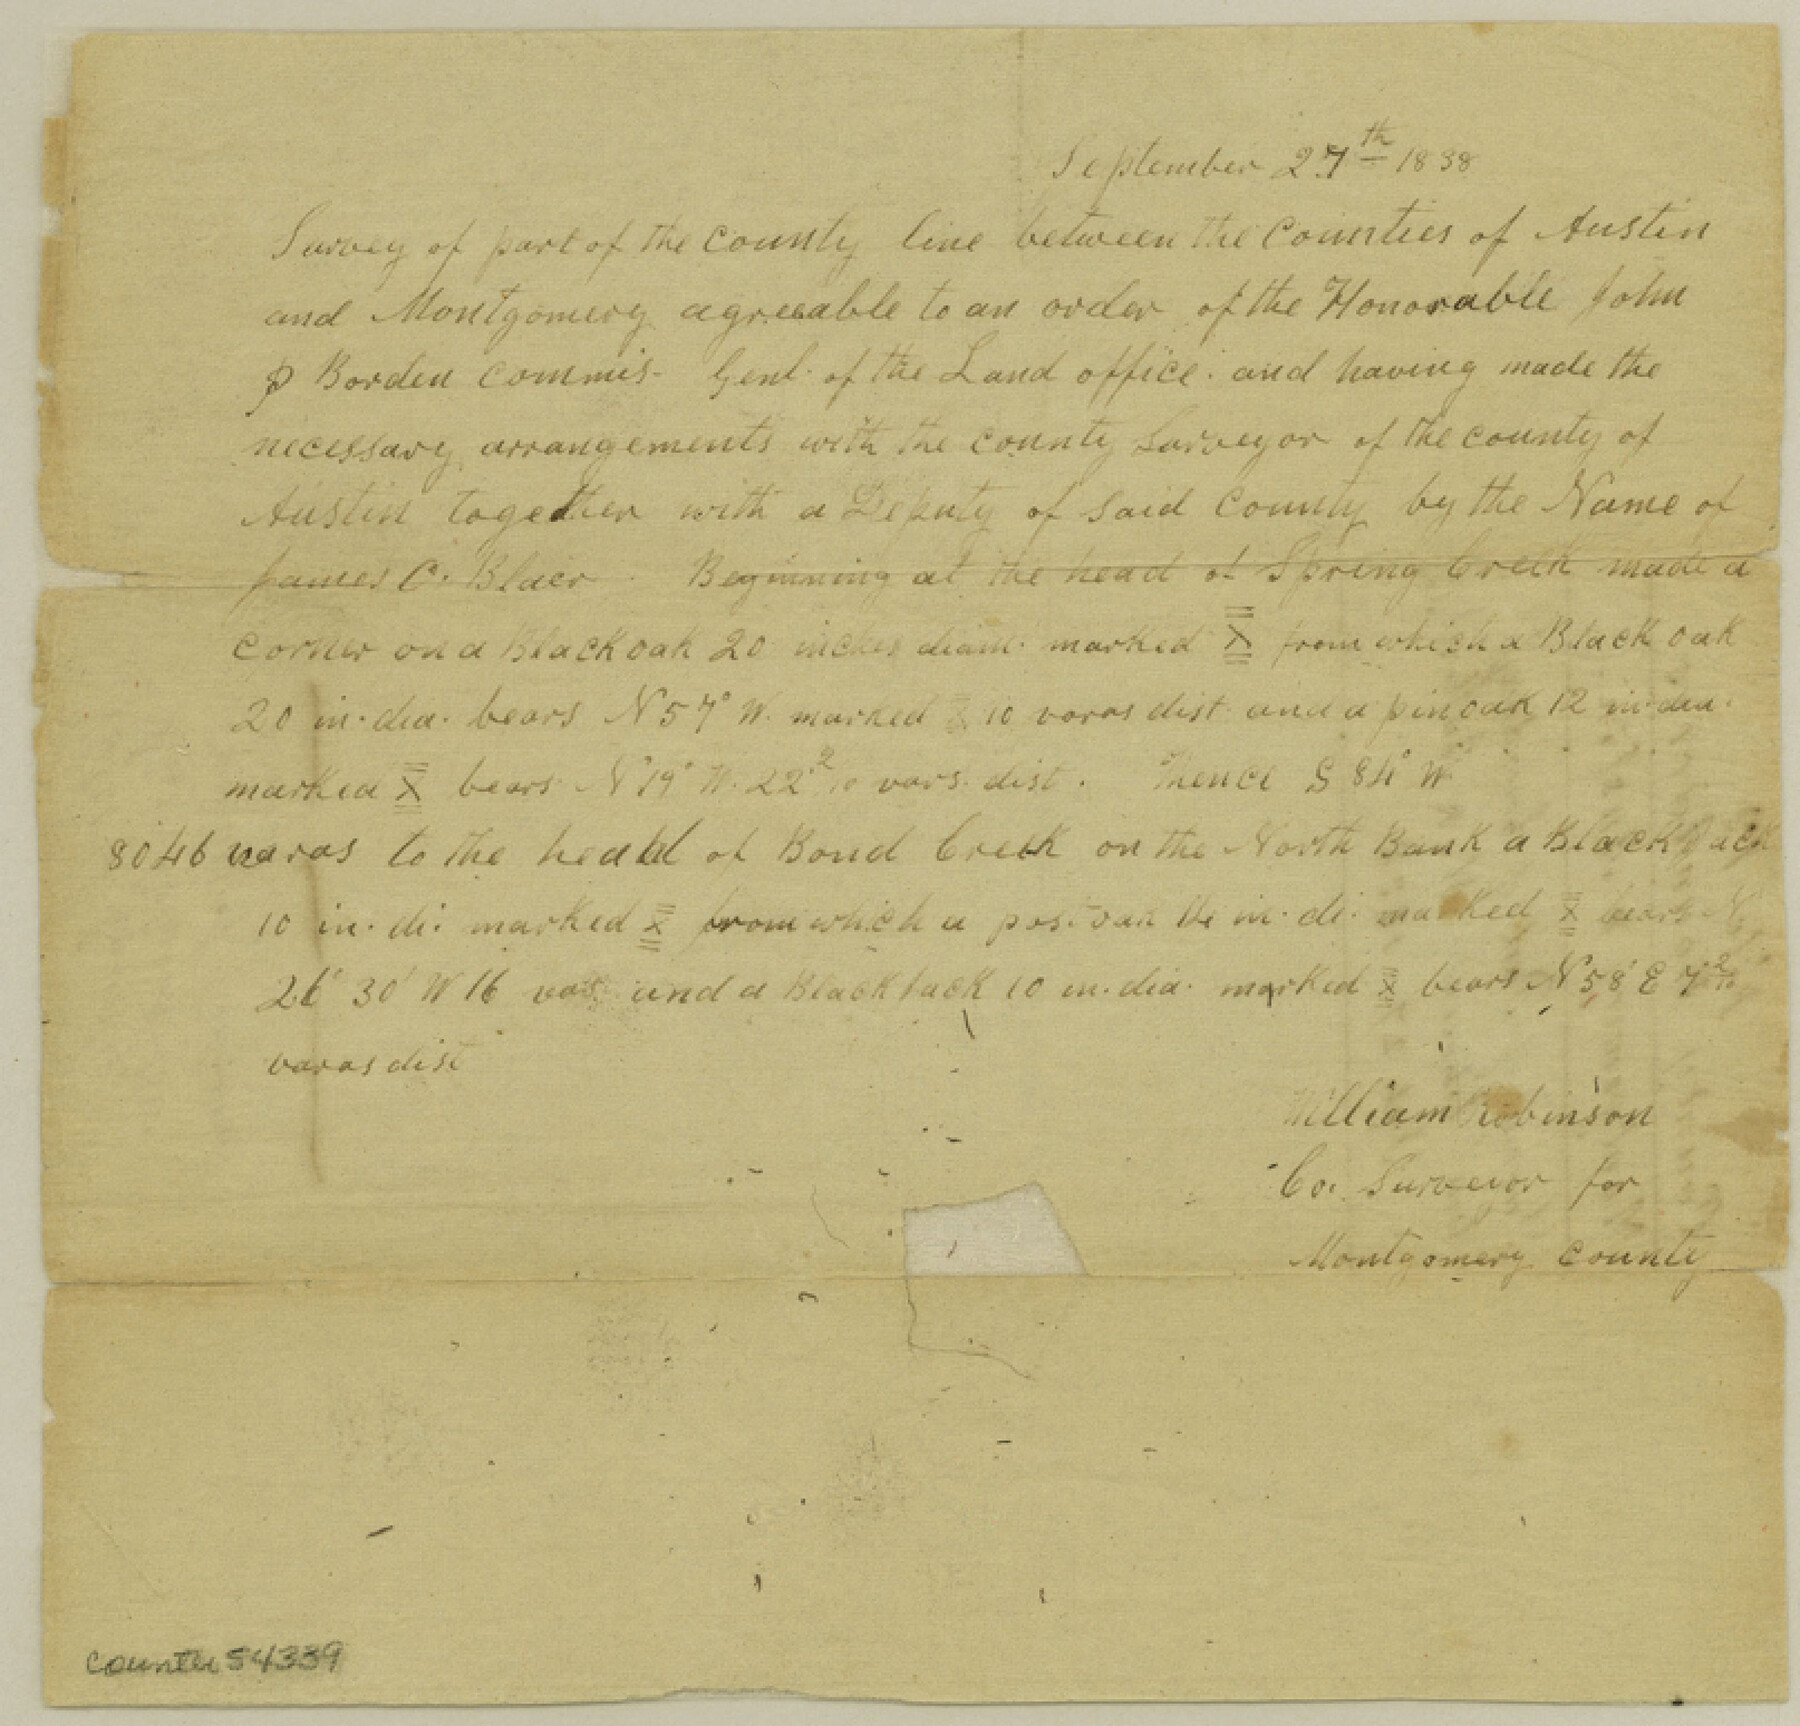 September 27th 1838
Survey of part of the county line between the Counties of Austin
and Montgomery agreeable to an order of the Honorable John
P Borden commis- Genl. of the Land office. and having made the
necessary arrangements with the county Surveyor of the county of
Austin together with a Deputy of said County by the Name of
James C. Blair. Beginning at the head of Spring Creek made a
corner on a Black oak 20 inches diam. marked X from which a Black oak
20 in. dia. bears N 57° W. marked X 10 varas dist. and a pin oak 12 in. dia.
marked X bears N 19° W. 22 2/10 vars. dist. Thence S 84° W
8046 varas to the head of Bond Creek on the North Bank a Black Jack
10 in. di. marked X from which a post oak in. di. marked X bears N
26° 30' W 16 vas. and a Black Jack 10 in. dia. marked X bears N 58° E 7 2/10
varas dist
William Robinson
Co. Surveyor for
Montgomery County
counter 54339